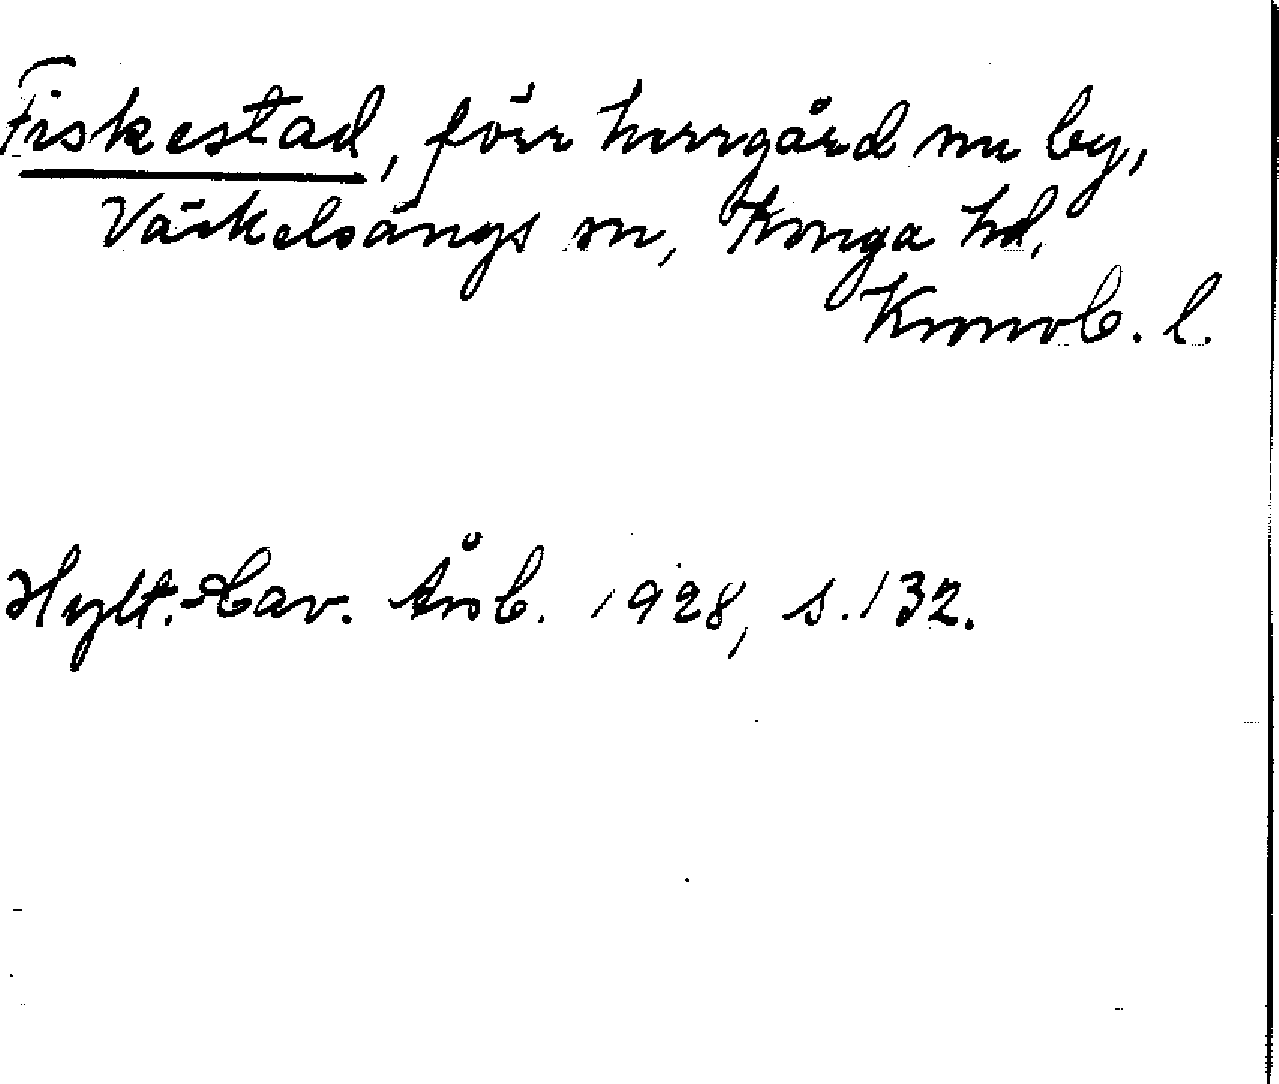 Fiskestad, förr herrgård nu by,
Väckelsångs sn, Konga hd.
Kronob. l.
Hylt.-Cav. Årsb. 1928, s. 132.